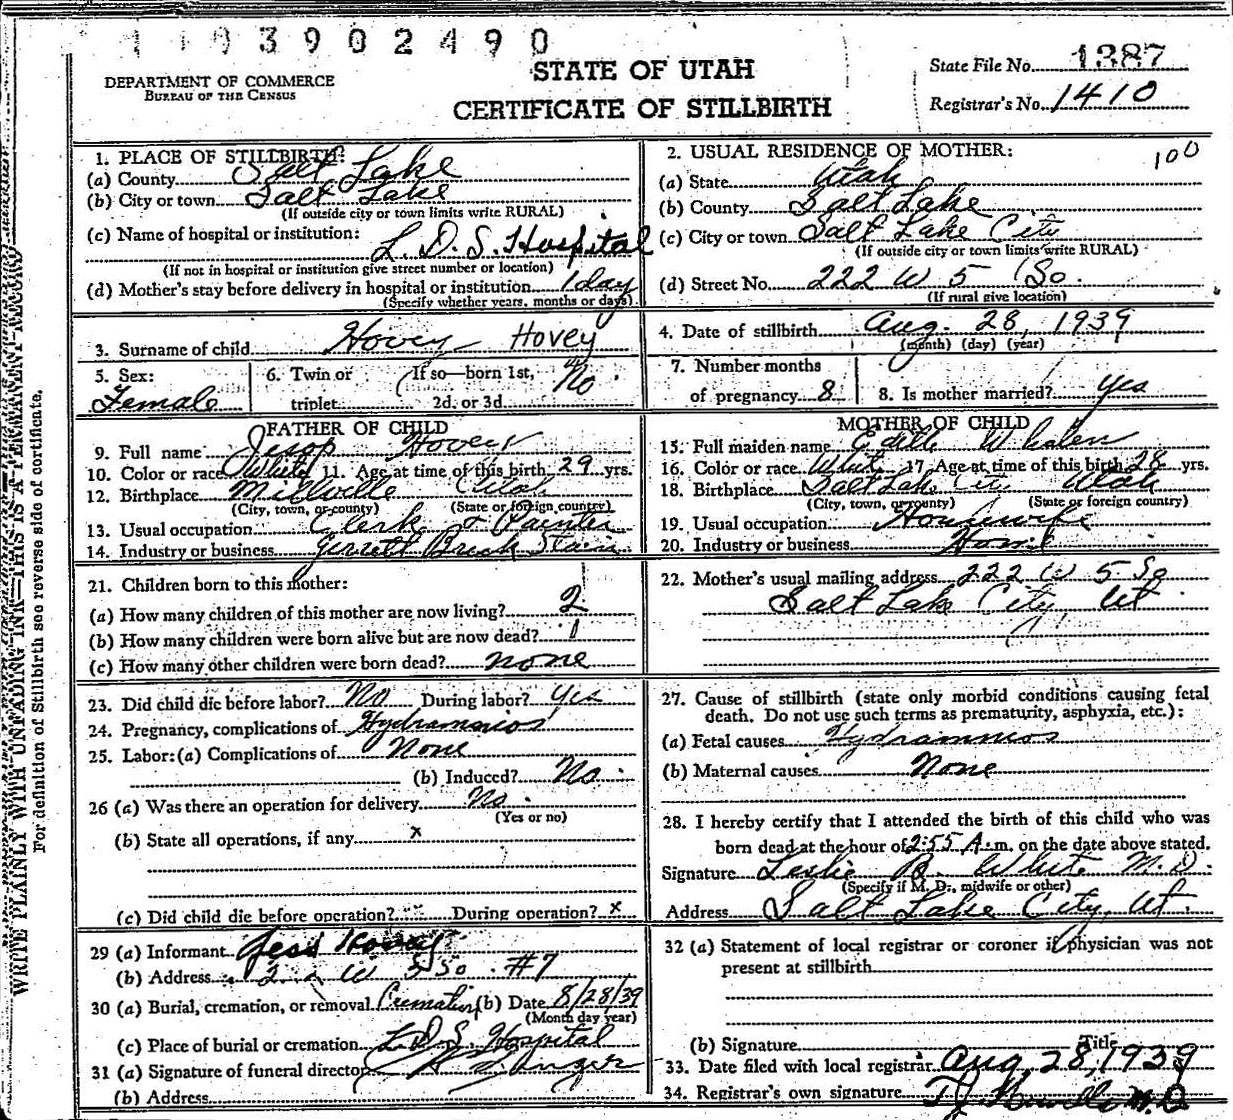 1 1 0 3 9 0 2 4 9 0
DEPARTMENT OF COMMERCE
BUREAU OF THE CENSUS
STATE OF UTAH
CERTIFICATE OF STILLBIRTH
State File No. 1387
Registrar's No. 1410
1. PLACE OF STILLBIRTH:
(a) County Salt Lake
(b) City or town Salt Lake
(If outside city or town limits write RURAL)
(c) Name of hospital or institution:
L. D. S. Hospital
(If not in hospital or institution give street number or location)
(d) Mother's stay before delivery in hospital or institution 1 day
(Specify whether years, months or days)
2. USUAL RESIDENCE OF MOTHER: 100
(a) State Utah
(b) County Salt Lake
(c) City or town Salt Lake City
(If outside city or town limits write RURAL)
(d) Street No. 222 W 5 So.
(If rural give location)
3. Surname of child Hovey Hovey
4. Date of stillbirth Aug. 28, 1939
(month) (day) (year)
5. Sex: Female
6. Twin or triplet (If so—born 1st, 2d. or 3d. No.
7. Number months of pregnancy 8
8. Is mother married? yes
FATHER OF CHILD
9. Full name Jesop Hovey
10. Color or race White 11. Age at time of this birth 29 yrs.
12. Birthplace Millville Utah
(City, town, or county) (State or foreign country)
13. Usual occupation Clerk & Painter
14. Industry or business Brick Stain
MOTHER OF CHILD
15. Full maiden name Edith Whalen
16. Color or race White 17. Age at time of this birth 28 yrs.
18. Birthplace Salt Lake City Utah
(City, town, or county) (State or foreign country)
19. Usual occupation Housewife
20. Industry or business Home
21. Children born to this mother:
(a) How many children of this mother are now living? 2
(b) How many children were born alive but are now dead? 1
(c) How many other children were born dead? none
22. Mother's usual mailing address 222 W 5 So
Salt Lake City, Ut
23. Did child die before labor? No During labor? yes
24. Pregnancy, complications of Hydramnios
25. Labor: (a) Complications of None
(b) Induced? No.
26 (a) Was there an operation for delivery No.
(Yes or no)
(b) State all operations, if any x
(c) Did child die before operation? During operation? x
27. Cause of stillbirth (state only morbid conditions causing fetal
death. Do not use such terms as prematurity, asphyxia, etc.):
(a) Fetal causes Hydramnios
(b) Maternal causes None
28. I hereby certify that I attended the birth of this child who was
born dead at the hour of 2:55 A.m. on the date above stated.
Signature Leslie B. White M.D.
(Specify if M. D., midwife or other)
Address Salt Lake City, Ut.
29 (a) Informant Jess Hovey
(b) Address W 5 So. #7
30 (a) Burial, cremation, or removal Cremation (b) Date 8/28/39
(Month day year)
(c) Place of burial or cremation L. D. S. Hospital
31 (a) Signature of funeral director
(b) Address
32 (a) Statement of local registrar or coroner if physician was not
present at stillbirth
(b) Signature Title
33. Date filed with local registrar Aug. 28, 1939
34. Registrar's own signature M.D.
WRITE PLAINLY WITH UNFADING INK—THIS IS A PERMANENT RECORD
For definition of Stillbirth see reverse side of certificate.